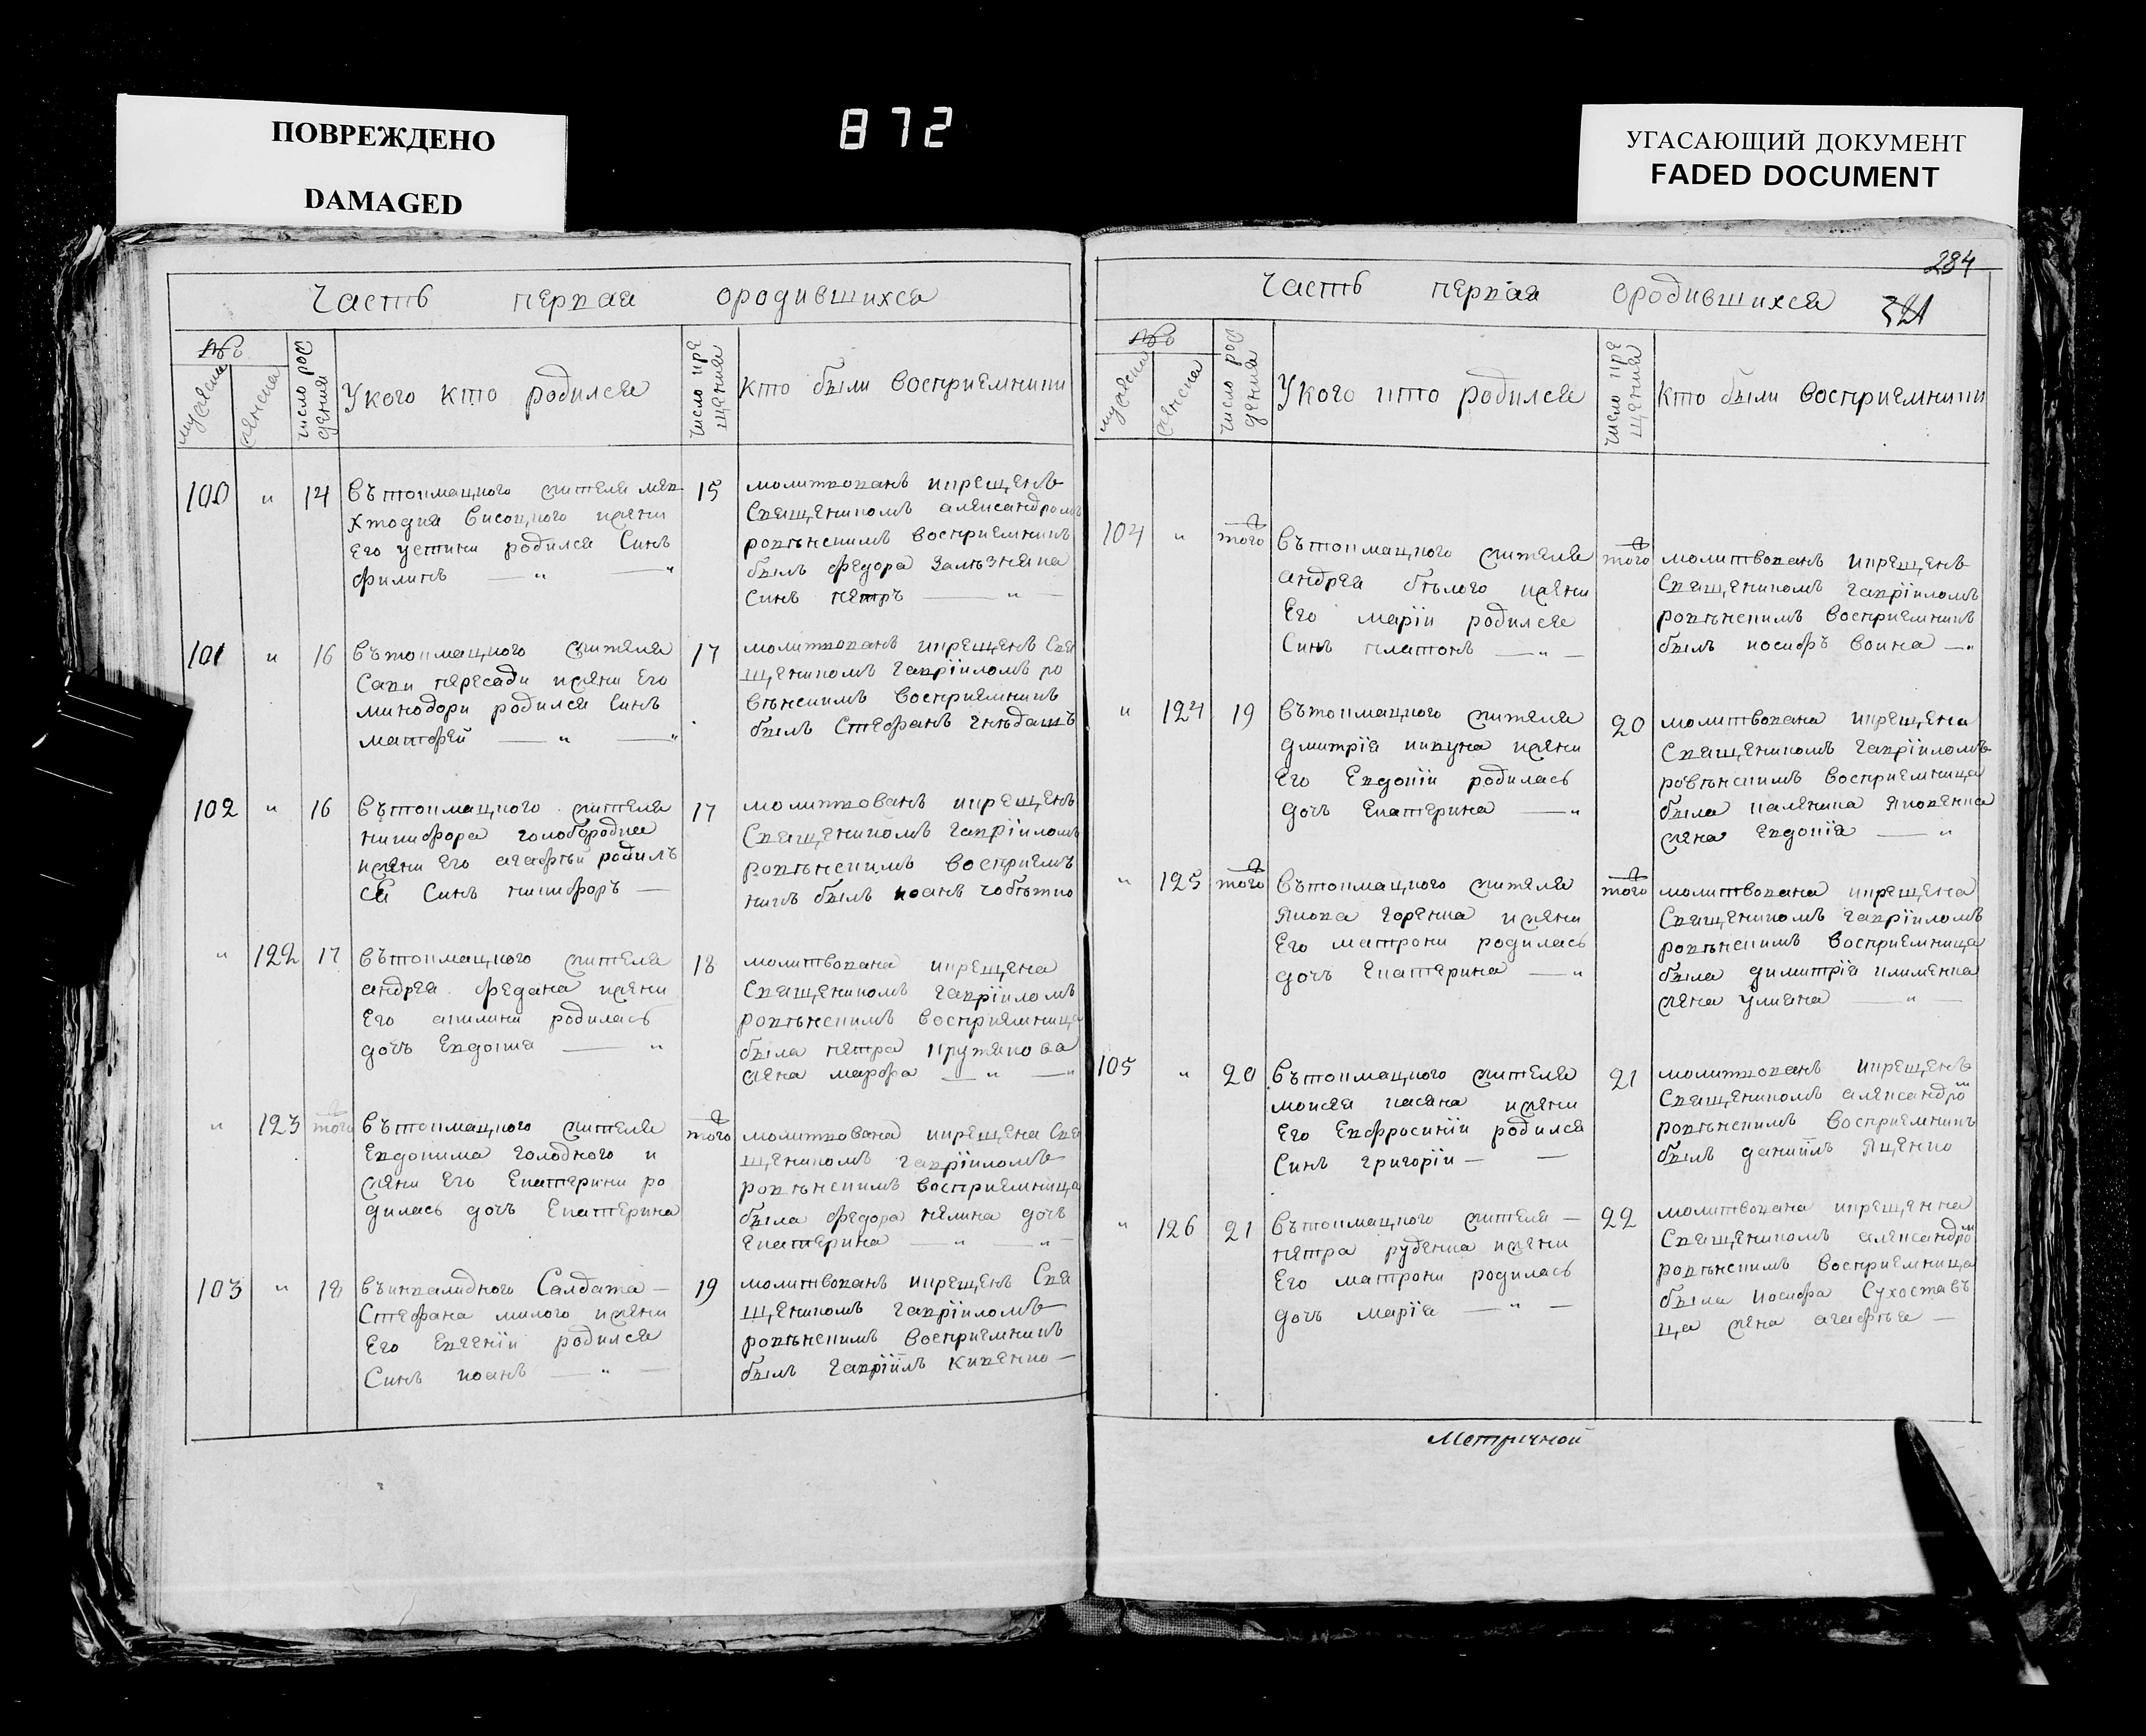 ПОВРЕЖДЕНО
DAMAGED
872
УГАСАЮЩИЙ ДОКУМЕНТ
FADED DOCUMENT
Часть первая ородившихся
№
мужеска
женска
число рож
дения
Укого кто родился
число кре
щения
кто были восприемники
100 " 14
вътокмацкого жителя
Висоцкого жени
его устини родился Синъ
филипъ — " — "
15
молитвованъ икрещенъ
Священикомъ александромъ
ровѣнскимъ восприемникъ
былъ федора Залѣзняка
синъ петръ — " —
101 " 16
вътокмацкого жителя
Сави пересади жени Его
минодори родился Синъ
матфей — " — "
17
молитвованъ икрещенъ Свя
щеникомъ гавріиломъ ро
вѣнскимъ восприемникъ
былъ Стефанъ гнѣдашъ
102 " 16
вътокмацкого жителя
никифора голобородка
жени его агафѣи родилъ
ся Синъ никифоръ —
17
молитвованъ икрещенъ
Священикомъ гавріиломъ
ровѣнскимъ восприем
никъ былъ иоанъ
" 122 17
вътокмацкого жителя
андрея федана жени
Его акилини родилась
дочъ Евдокия — "
18
молитвована икрещена
Священикомъ гавріиломъ
ровѣнскимъ восприемница
была петра кружкова
жена марфа — " — "
" 123 того
вътокмацкого жителя
Евдокима голодного и
жени Его Екатерини ро
дилась дочъ Екатерина
того
молитвована икрещена Свя
щеникомъ гавріиломъ
ровѣнскимъ восприемница
была федора дочъ
Екатерина — " — " —
103 " 18
въинвалидного Салдата —
Стефана милого жени
Его Евгеніи родился
Синъ иоанъ — " —
19
молитвованъ икрещенъ Свя
щеникомъ гавріиломъ
ровѣнскимъ восприемникъ
былъ гавріилъ Кивенко —
284
Часть первая ородившихся 321
№
мужеска
женска
число рож
дения
Укого кто родился
число кре
щения
Кто были восприемники
104 " того
вътокмацкого жителя
андрея бѣлого жени
Его маріи родился
Синъ платонъ — " —
того
молитвованъ икрещенъ
Священикомъ гавріиломъ
ровѣнскимъ восприемникъ
былъ иосифъ воина — "
" 124 19
вътокмацкого жителя
дмитрія жени
Его Евдокіи родилась
дочъ Екатерина — "
20
молитвована икрещена
Священикомъ гавріиломъ
ровѣнскимъ восприемница
была Яковенка
жена Евдокія — "
" 125 того
вътокмацкого жителя
Якова горенка жени
Его матрони родилась
дочъ Екатерина — "
того
молитвована икрещена
Священикомъ гавріиломъ
ровѣнскимъ восприемница
была димитрія клименка
жена улияна — " —
105 " 20
вътокмацкого жителя
моисея касяна жени
Его Евфросиніи родился
Синъ григоріи — —
21
молитвованъ икрещенъ
Священикомъ александром
ровѣнскимъ восприемникъ
былъ даніилъ Яценко
" 126 21
вътокмацкого жителя —
петра руденка жени
Его матрони родилась
дочъ марія — " —
22
молитвована икрещенна
Священикомъ александром
ровѣнскимъ восприемница
была иосифа Сухоставъ
ца жена агафѣя —
Метричной